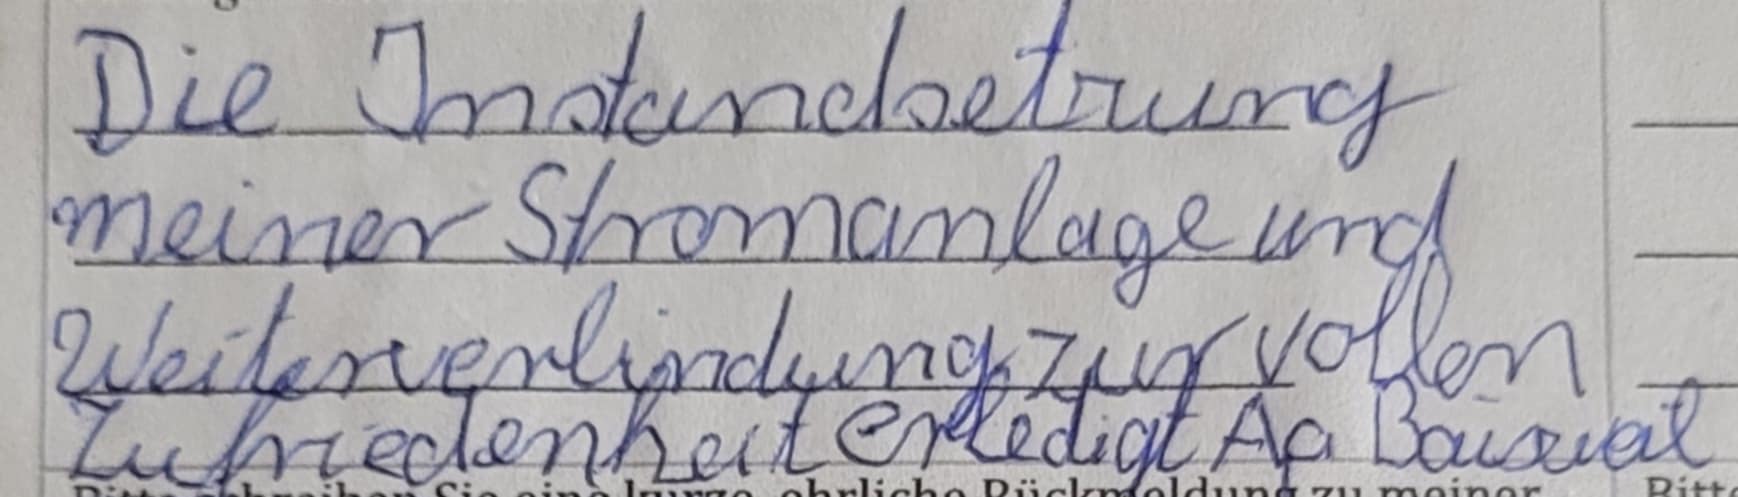 Die Instandsetzung
meiner Stromanlage und
Weiterverbindung zur vollen
Zufriedenheit erledigt
Bitte schreiben Sie eine kurze, ehrliche Rückmeldung zu meiner Bitte